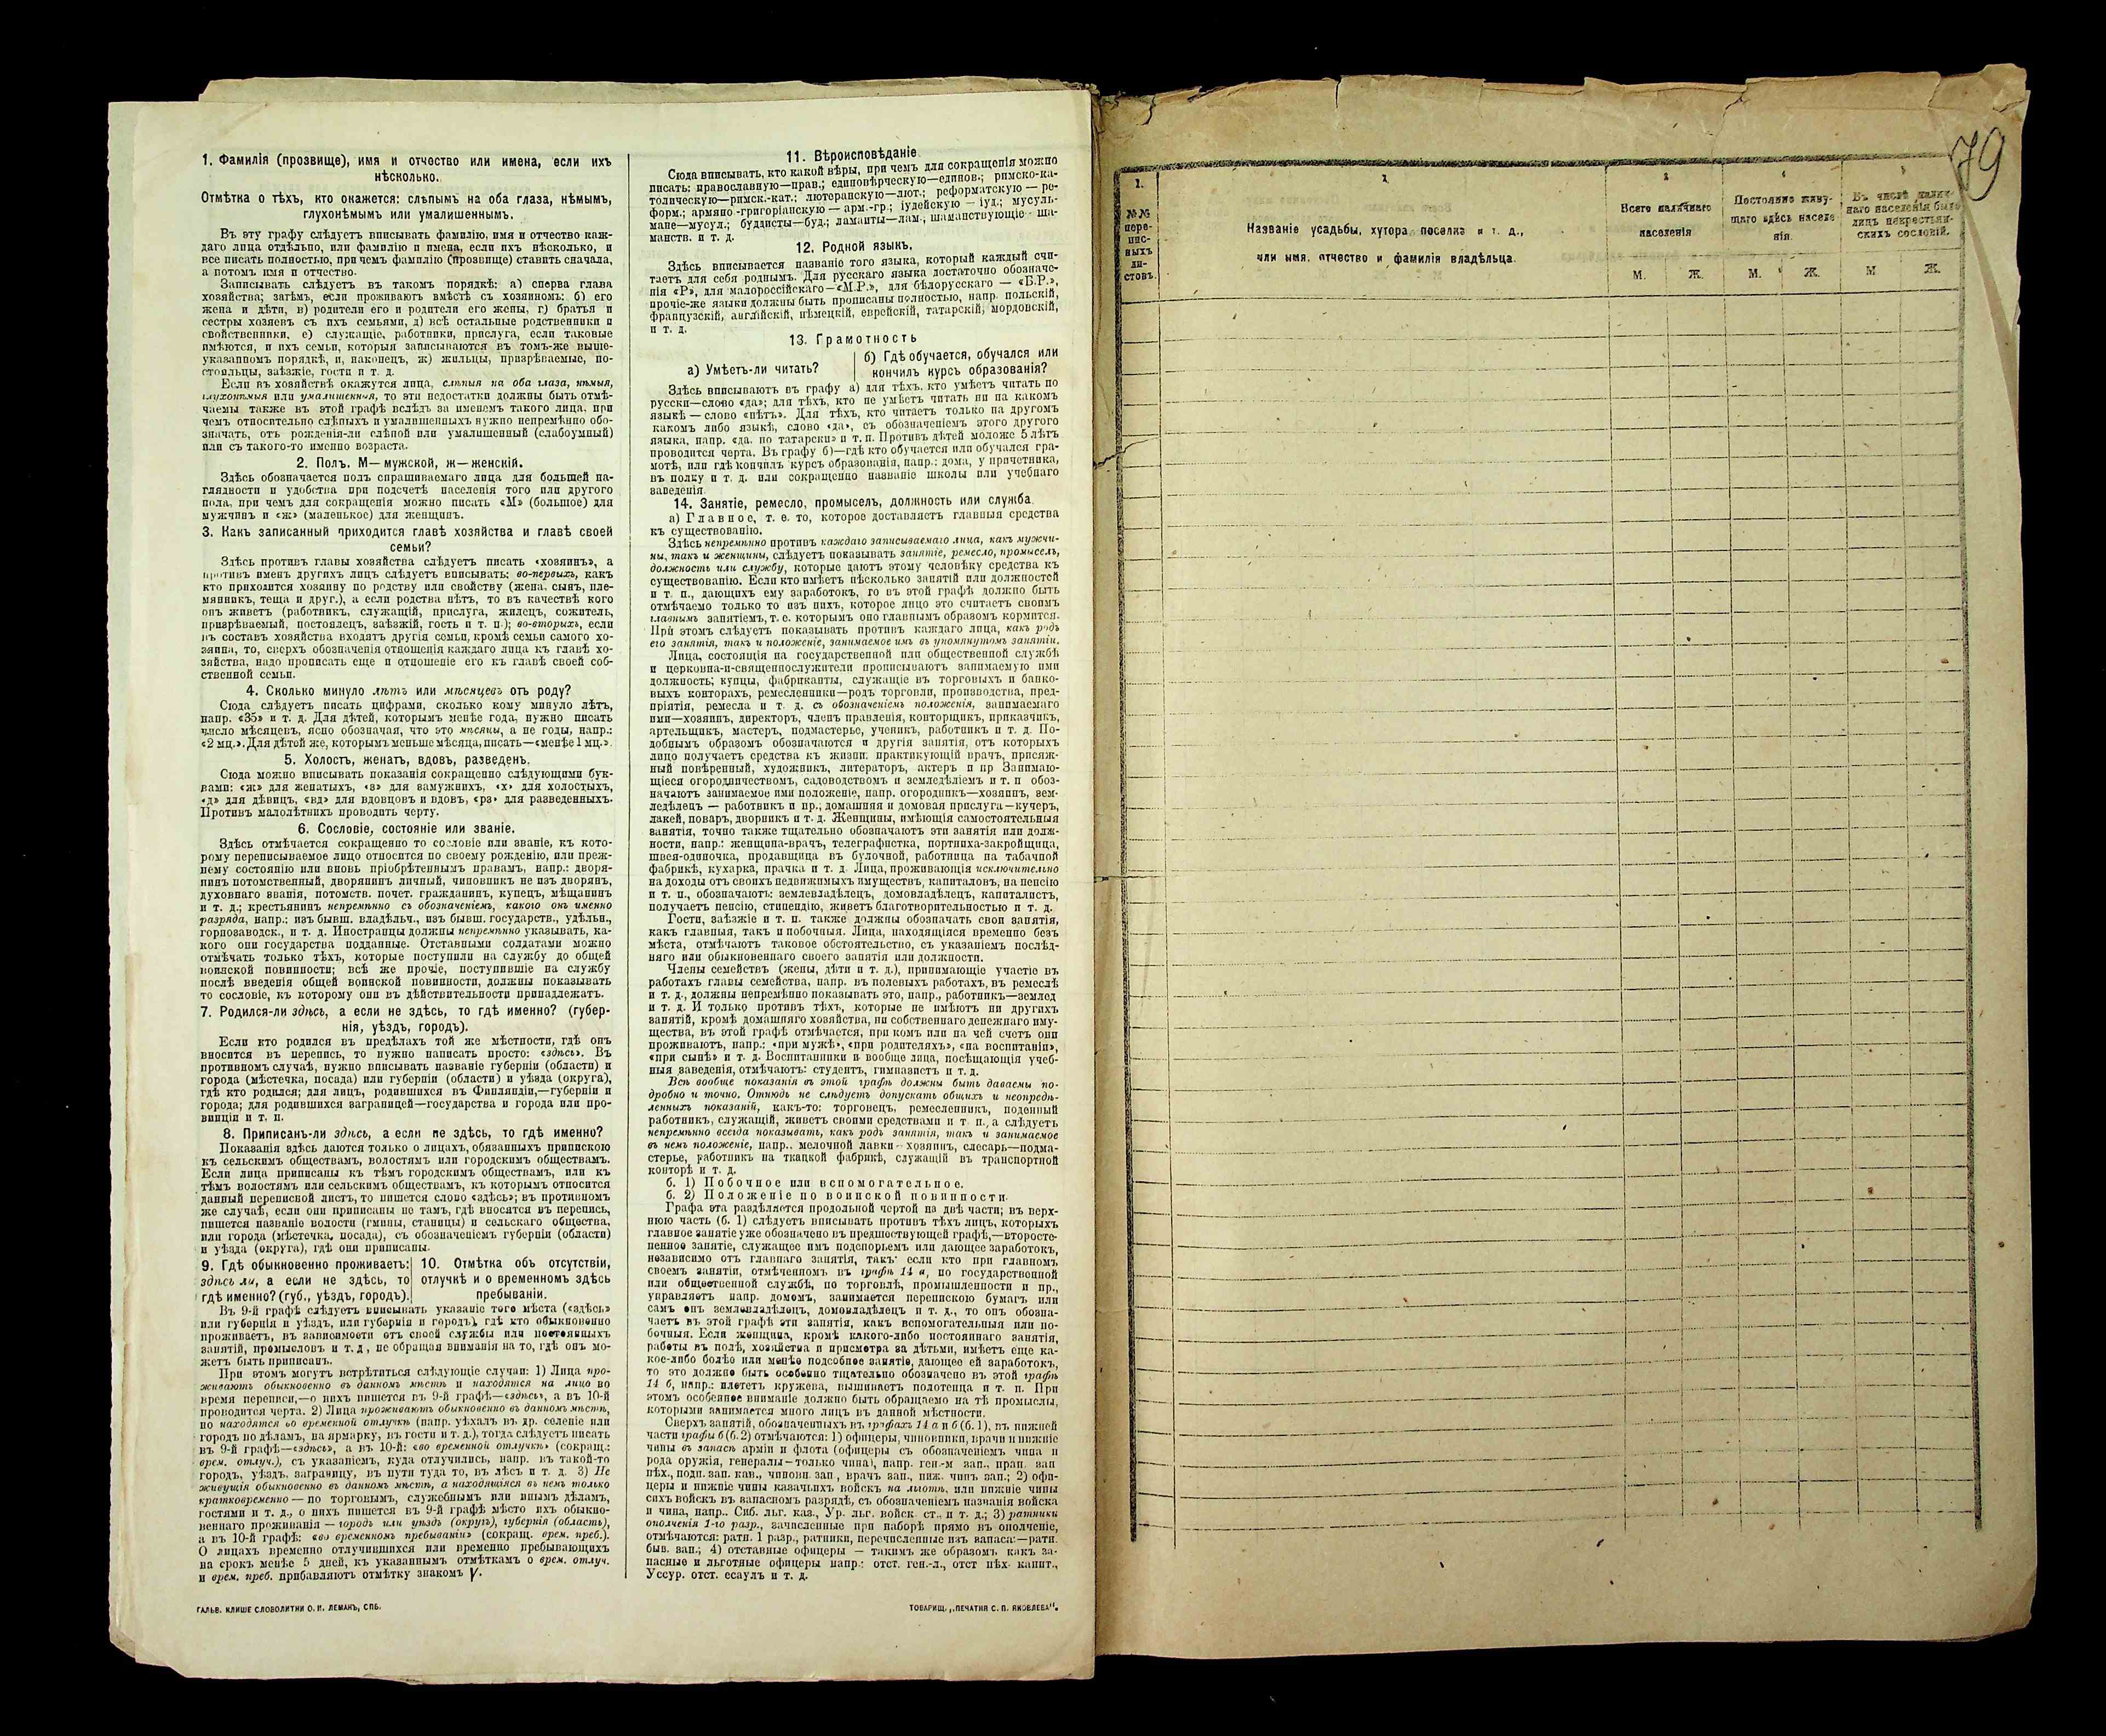 1. Фамилія (прозвище), имя и отчество или имена, если ихъ
нѣсколько.
Отмѣтка о тѣхъ, кто окажется: слѣпымъ на оба глаза, нѣмымъ,
глухонѣмымъ или умалишеннымъ.
Въ эту графу слѣдуетъ вписывать фамилію, имя и отчество каж-
даго лица отдѣльно, или фамилію и имена, если ихъ нѣсколько, и
все писать полностью, при чемъ фамилію (прозвище) ставить сначала,
а потомъ имя и отчество.
Записывать слѣдуетъ въ такомъ порядкѣ: а) сперва глава
хозяйства; затѣмъ, если проживаютъ вмѣстѣ съ хозяиномъ: б) его
жена и дѣти, в) родители его и родители его жены, г) братья и
сестры хозяевъ съ ихъ семьями, д) всѣ остальные родственники и
свойственники, е) служащіе, работники, прислуга, если таковые
имѣются, и ихъ семьи, которыя записываются въ томъ-же выше-
указанномъ порядкѣ, и, наконецъ, ж) жильцы, призрѣваемые, по-
стояльцы, заѣзжіе, гости и т. д.
Если въ хозяйствѣ окажутся лица, слѣпыя на оба глаза, нѣмыя,
глухонѣмыя или умалишенныя, то эти недостатки должны быть отмѣ-
чаемы также въ этой графѣ вслѣдъ за именемъ такого лица, при
чемъ относительно слѣпыхъ и умалишенныхъ нужно непремѣнно обо-
значать, отъ рожденія-ли слѣпой или умалишенный (слабоумный)
или съ такого-то именно возраста.
2. Полъ. М—мужской, ж—женскій.
Здѣсь обозначается полъ спрашиваемаго лица для большей на-
глядности и удобства при подсчетѣ населенія того или другого
пола, при чемъ для сокращенія можно писать «М» (большое) для
мужчинъ и «ж» (маленькое) для женщинъ.
3. Какъ записанный приходится главѣ хозяйства и главѣ своей
семьи?
Здѣсь противъ главы хозяйства слѣдуетъ писать «хозяинъ», а
противъ именъ другихъ лицъ слѣдуетъ вписывать: во-первыхъ, какъ
кто приходится хозяину по родству или свойству (жена, сынъ, пле-
мянникъ, теща и друг.), а если родства нѣтъ, то въ качествѣ кого
онъ живетъ (работникъ, служащій, прислуга, жилецъ, сожитель,
призрѣваемый, постоялецъ, заѣзжій, гость и т. п.); во-вторыхъ, если
въ составъ хозяйства входятъ другія семьи, кромѣ семьи самого хо-
зяина, то, сверхъ обозначенія отношенія каждаго лица къ главѣ хо-
зяйства, надо прописать еще и отношеніе его къ главѣ своей соб-
ственной семьи.
4. Сколько минуло лѣтъ или мѣсяцевъ отъ роду?
Сюда слѣдуетъ писать цифрами, сколько кому минуло лѣтъ,
напр. «35» и т. д. Для дѣтей, которымъ менѣе года, нужно писать
число мѣсяцевъ, ясно обозначая, что это мѣсяцы, а не годы, напр.:
«2 мц.». Для дѣтей же, которымъ меньше мѣсяца, писать—«менѣе 1 мц.».
5. Холостъ, женатъ, вдовъ, разведенъ.
Сюда можно вписывать показанія сокращенно слѣдующими бук-
вами: «ж» для женатыхъ, «з» для замужнихъ, «х» для холостыхъ,
«д» для дѣвицъ, «вд» для вдовцовъ и вдовъ, «рз» для разведенныхъ.
Противъ малолѣтнихъ проводить черту.
6. Сословіе, состояніе или званіе.
Здѣсь отмѣчается сокращенно то сословіе или званіе, къ кото-
рому переписываемое лицо относится по своему рожденію, или преж-
нему состоянію или вновь пріобрѣтеннымъ правамъ, напр.: дворя-
нинъ потомственный, дворянинъ личный, чиновникъ не изъ дворянъ,
духовнаго званія, потомств. почет. гражданинъ, купецъ, мѣщанинъ
и т. д.; крестьянинъ непремѣнно съ обозначеніемъ, какого онъ именно
разряда, напр.: изъ бывш. владѣльч., изъ бывш. государств., удѣльн.,
горнозаводск., и т. д. Иностранцы должны непремѣнно указывать, ка-
кого они государства подданные. Отставными солдатами можно
отмѣчать только тѣхъ, которые поступили на службу до общей
воинской повинности; всѣ же прочіе, поступившіе на службу
послѣ введенія общей воинской повинности, должны показывать
то сословіе, къ которому они въ дѣйствительности принадлежатъ.
7. Родился-ли здѣсь, а если не здѣсь, то гдѣ именно? (губер-
нія, уѣздъ, городъ).
Если кто родился въ предѣлахъ той же мѣстности, гдѣ онъ
вносится въ перепись, то нужно написать просто: «здѣсь». Въ
противномъ случаѣ, нужно вписывать названіе губерніи (области) и
города (мѣстечка, посада) или губерніи (области) и уѣзда (округа),
гдѣ кто родился; для лицъ, родившихся въ Финляндіи,—губерніи и
города; для родившихся заграницей—государства и города или про-
винціи и т. п.
8. Приписанъ-ли здѣсь, а если не здѣсь, то гдѣ именно?
Показанія здѣсь даются только о лицахъ, обязанныхъ припискою
къ сельскимъ обществамъ, волостямъ или городскимъ обществамъ.
Если лица приписаны къ тѣмъ городскимъ обществамъ, или къ
тѣмъ волостямъ или сельскимъ обществамъ, къ которымъ относится
данный переписной листъ, то пишется слово «здѣсь»; въ противномъ
же случаѣ, если они приписаны не тамъ, гдѣ вносятся въ перепись,
пишется названіе волости (гмины, станицы) и сельскаго общества,
или города (мѣстечка, посада), съ обозначеніемъ губерніи (области)
и уѣзда (округа), гдѣ они приписаны.
9. Гдѣ обыкновенно проживаетъ:
здѣсь ли, а если не здѣсь, то
гдѣ именно? (губ., уѣздъ, городъ).
10. Отмѣтка объ отсутствіи,
отлучкѣ и о временномъ здѣсь
пребываніи.
Въ 9-й графѣ слѣдуетъ вписывать указаніе того мѣста («здѣсь»
или губернія и уѣздъ, или губернія и городъ), гдѣ кто обыкновенно
проживаетъ, въ зависимости отъ своей службы или постоянныхъ
занятій, промысловъ и т. д., не обращая вниманія на то, гдѣ онъ мо-
жетъ быть приписанъ.
При этомъ могутъ встрѣтиться слѣдующіе случаи: 1) Лица про-
живаютъ обыкновенно въ данномъ мѣстѣ и находятся на лицо во
время переписи,—о нихъ пишется въ 9-й графѣ—«здѣсь», а въ 10-й
проводится черта. 2) Лица проживаютъ обыкновенно въ данномъ мѣстѣ,
но находятся во временной отлучкѣ (напр. уѣхалъ въ др. селеніе или
городъ по дѣламъ, на ярмарку, въ гости и т. д.), тогда слѣдуетъ писать
въ 9-й графѣ—«здѣсь», а въ 10-й: «во временной отлучкѣ» (сокращ.:
врем. отлуч.), съ указаніемъ, куда отлучились, напр. въ такой-то
городъ, уѣздъ, заграницу, въ пути туда то, въ лѣсъ и т. д. 3) Не
живущія обыкновенно въ данномъ мѣстѣ, а находящіяся въ немъ только
кратковременно — по торговымъ, служебнымъ или инымъ дѣламъ,
гостями и т. д., о нихъ пишется въ 9-й графѣ мѣсто ихъ обыкно-
веннаго проживанія — городъ или уѣздъ (округъ), губернія (область),
а въ 10-й графѣ: «во временномъ пребываніи» (сокращ. врем. преб.).
О лицахъ временно отлучившихся или временно пребывающихъ
на срокъ менѣе 5 дней, къ указаннымъ отмѣткамъ о врем. отлуч.
и врем. преб. прибавляютъ отмѣтку знакомъ V.
ГАЛЬВ. КЛИШЕ СЛОВОЛИТНИ О. И. ЛЕМАНЪ, СПБ.
11. Вѣроисповѣданіе
Сюда вписывать, кто какой вѣры, при чемъ для сокращенія можно
писать: православную—прав.; единовѣрческую—единов.; римско-ка-
толическую—римск.-кат.; лютеранскую—лют.; реформатскую — ре-
форм.; армяно-григоріанскую — арм.-гр.; іудейскую — іуд.; мусуль-
мане—мусул.; буддисты—буд.; ламаиты—лам.; шаманствующіе — ша-
манств. и т. д.
12. Родной языкъ.
Здѣсь вписывается названіе того языка, который каждый счи-
таетъ для себя роднымъ. Для русскаго языка достаточно обозначе-
нія «Р», для малороссійскаго—«М.Р.», для бѣлорусскаго — «Б.Р.»,
прочіе-же языки должны быть прописаны полностью, напр. польскій,
французскій, англійскій, нѣмецкій, еврейскій, татарскій, мордовскій,
и т. д.
13. Грамотность
а) Умѣетъ-ли читать?
б) Гдѣ обучается, обучался или
кончилъ курсъ образованія?
Здѣсь вписываютъ въ графу а) для тѣхъ, кто умѣетъ читать по
русски—слово «да»; для тѣхъ, кто не умѣетъ читать ни на какомъ
языкѣ — слово «нѣтъ». Для тѣхъ, кто читаетъ только на другомъ
какомъ либо языкѣ, слово «да», съ обозначеніемъ этого другого
языка, напр. «да, по татарски» и т. п. Противъ дѣтей моложе 5 лѣтъ
проводится черта. Въ графу б)—гдѣ кто обучается или обучался гра-
мотѣ, или гдѣ кончилъ курсъ образованія, напр.: дома, у причетника,
въ полку и т. д. или сокращенно названіе школы или учебнаго
заведенія.
14. Занятіе, ремесло, промыселъ, должность или служба.
а) Главное, т. е. то, которое доставляетъ главныя средства
къ существованію.
Здѣсь непремѣнно противъ каждаго записываемаго лица, какъ мужчи-
ны, такъ и женщины, слѣдуетъ показывать занятіе, ремесло, промыселъ,
должность или службу, которые даютъ этому человѣку средства къ
существованію. Если кто имѣетъ нѣсколько занятій или должностей
и т. п., дающихъ ему заработокъ, то въ этой графѣ должно быть
отмѣчаемо только то изъ нихъ, которое лицо это считаетъ своимъ
главнымъ занятіемъ, т. е. которымъ оно главнымъ образомъ кормится.
При этомъ слѣдуетъ показывать противъ каждаго лица, какъ родъ
его занятія, такъ и положеніе, занимаемое имъ въ упомянутомъ занятіи.
Лица, состоящія на государственной или общественной службѣ
и церковно-и-священнослужители прописываютъ занимаемую ими
должность; купцы, фабриканты, служащіе въ торговыхъ и банко-
выхъ конторахъ, ремесленники—родъ торговли, производства, пред-
пріятія, ремесла и т. д. съ обозначеніемъ положенія, занимаемаго
ими—хозяинъ, директоръ, членъ правленія, конторщикъ, приказчикъ,
артельщикъ, мастеръ, подмастерье, ученикъ, работникъ и т. д. По-
добнымъ образомъ обозначаются и другія занятія, отъ которыхъ
лицо получаетъ средства къ жизни: практикующій врачъ, присяж-
ный повѣренный, художникъ, литераторъ, актеръ и пр Занимаю-
щіеся огородничествомъ, садоводствомъ и земледѣліемъ и т. п обоз-
начаютъ занимаемое ими положеніе, напр. огородникъ—хозяинъ, зем-
ледѣлецъ — работникъ и пр.; домашняя и домовая прислуга—кучеръ,
лакей, поваръ, дворникъ и т. д. Женщины, имѣющія самостоятельныя
занятія, точно также тщательно обозначаютъ эти занятія или долж-
ности, напр.: женщина-врачъ, телеграфистка, портниха-закройщица,
швея-одиночка, продавщица въ булочной, работница на табачной
фабрикѣ, кухарка, прачка и т. д. Лица, проживающія исключительно
на доходы отъ своихъ недвижимыхъ имуществъ, капиталовъ, на пенсію
и т. п., обозначаютъ: землевладѣлецъ, домовладѣлецъ, капиталистъ,
получаетъ пенсію, стипендію, живетъ благотворительностью и т. д.
Гости, заѣзжіе и т. п. также должны обозначать свои занятія,
какъ главныя, такъ и побочныя. Лица, находящіяся временно безъ
мѣста, отмѣчаютъ таковое обстоятельство, съ указаніемъ послѣд-
няго или обыкновеннаго своего занятія или должности.
Члены семействъ (жены, дѣти и т. д.), принимающіе участіе въ
работахъ главы семейства, напр. въ полевыхъ работахъ, въ ремеслѣ
и т. д., должны непремѣнно показывать это, напр., работникъ—землед
и т. д. И только противъ тѣхъ, которые не имѣютъ ни другихъ
занятій, кромѣ домашняго хозяйства, ни собственнаго денежнаго иму-
щества, въ этой графѣ отмѣчается, при комъ или на чей счетъ они
проживаютъ, напр.: «при мужѣ», «при родителяхъ», «на воспитаніи»,
«при сынѣ» и т. д. Воспитанники и вообще лица, посѣщающія учеб-
ныя заведенія, отмѣчаютъ: студентъ, гимназистъ и т. д.
Всѣ вообще показанія въ этой графѣ должны быть даваемы по-
дробно и точно. Отнюдь не слѣдуетъ допускать общихъ и неопредѣ-
ленныхъ показаній, какъ-то: торговецъ, ремесленникъ, поденный
работникъ, служащій, живетъ своими средствами и т п., а слѣдуетъ
непремѣнно всегда показывать, какъ родъ занятія, такъ и занимаемое
въ немъ положеніе, напр., мелочной лавки — хозяинъ, слесарь—подма-
стерье, работникъ на ткацкой фабрикѣ, служащій въ транспортной
конторѣ и т. д.
б. 1) Побочное или вспомогательное.
б. 2) Положеніе по воинской повинности.
Графа эта раздѣляется продольной чертой на двѣ части; въ верх-
нюю часть (б. 1) слѣдуетъ вписывать противъ тѣхъ лицъ, которыхъ
главное занятіе уже обозначено въ предшествующей графѣ,—второсте-
пенное занятіе, служащее имъ подспорьемъ или дающее заработокъ,
независимо отъ главнаго занятія, такъ: если кто при главномъ
своемъ занятіи, отмѣченномъ въ графѣ 14 а, по государственной
или общественной службѣ, по торговлѣ, промышленности и пр.,
управляетъ напр. домомъ, занимается перепискою бумагъ или
самъ онъ землевладѣлецъ, домовладѣлецъ и т. д., то онъ обозна-
чаетъ въ этой графѣ эти занятія, какъ вспомогательныя или по-
бочныя. Если женщина, кромѣ какого-либо постояннаго занятія,
работы въ полѣ, хозяйства и присмотра за дѣтьми, имѣетъ еще ка-
кое-либо болѣе или менѣе подсобное занятіе, дающее ей заработокъ,
то это должно быть особенно тщательно обозначено въ этой графѣ
14 б, напр.: плететъ кружева, вышиваетъ полотенца и т. п. При
этомъ особенное вниманіе должно быть обращаемо на тѣ промыслы,
которыми занимается много лицъ въ данной мѣстности.
Сверхъ занятій, обозначенныхъ въ графахъ 14 а и б (б. 1), въ нижней
части графы б (б. 2) отмѣчаются: 1) офицеры, чиновники, врачи и нижніе
чины въ запасѣ арміи и флота (офицеры съ обозначеніемъ чина и
рода оружія, генералы—только чина), напр. ген.-м зап., прап. зап
пѣх., подп. зап. кав., чиновн. зап., врачъ зап., ниж. чинъ зап.; 2) офи-
церы и нижніе чины казачьихъ войскъ на льготѣ, или нижніе чины
сихъ войскъ въ запасномъ разрядѣ, съ обозначеніемъ названія войска
и чина, напр.. Сиб. льг. каз., Ур. льг. войск. ст., и т. д.; 3) ратники
ополченія 1-го разр., зачисленные при наборѣ прямо въ ополченіе,
отмѣчаются: ратн. 1 разр., ратники, перечисленные изъ запаса:—ратн.
быв. зап.; 4) отставные офицеры — такимъ же образомъ какъ за-
пасные и льготные офицеры напр.: отст. ген.-л., отст пѣх. капит.,
Уссур. отст. есаулъ и т. д.
ТОВАРИЩ. „ПЕЧАТНЯ С. П. ЯКОВЛЕВА".
79
1.
№№
пере-
пис-
ныхъ
ли-
стовъ.
2
Названіе усадьбы, хутора поселка и т. д.,
или имя, отчество и фамилія владѣльца.
3
Всего наличнаго
населенія
М. Ж.
4
Постоянно живу-
щаго здѣсь населе
нія.
М. Ж.
5
Въ числѣ налич-
наго населенія было
лицъ некрестьян-
скихъ сословій.
М Ж.